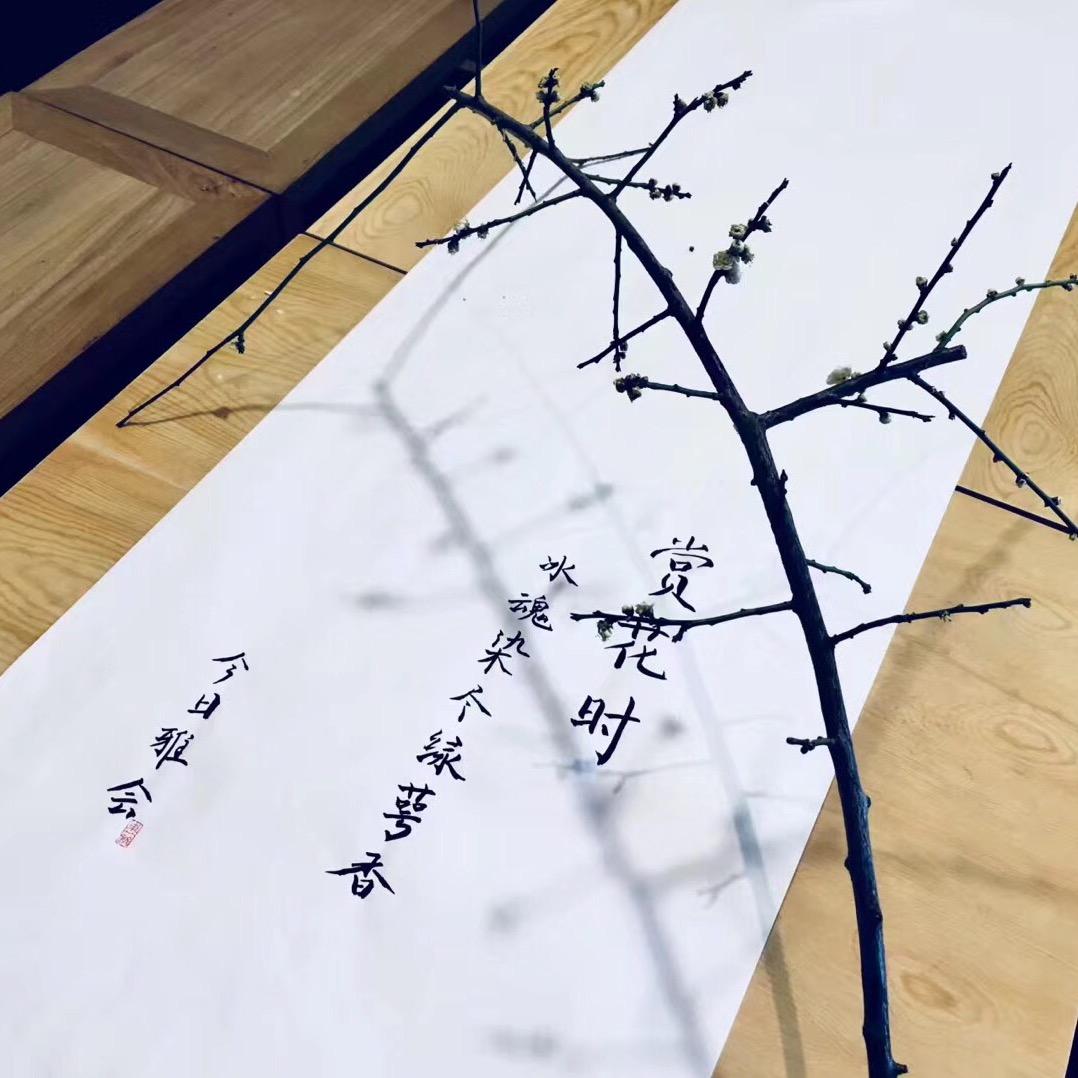 赏花时
冰魂染尽绿萼香
今日雅会